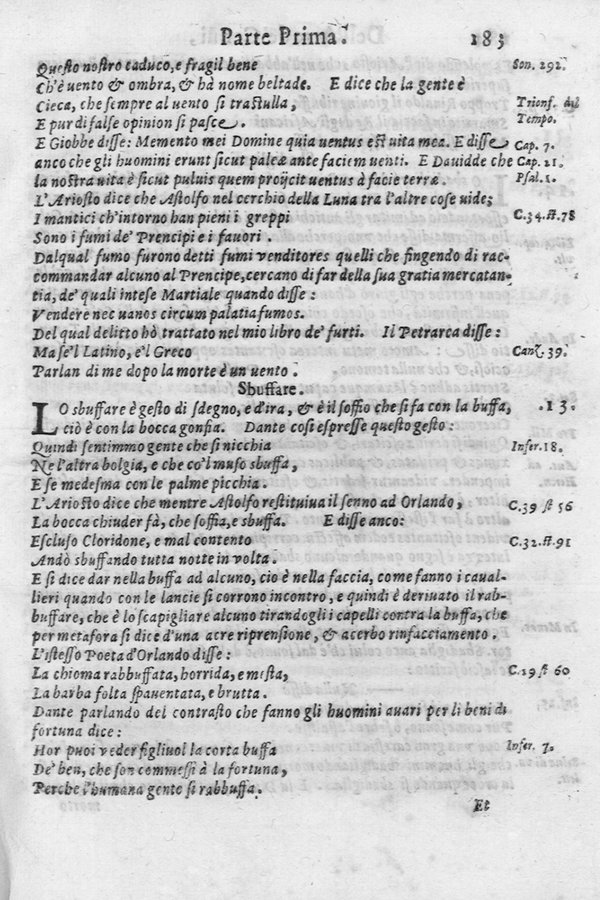 Parte Prima. 183
Questo nostro caduco, e fragil bene Son. 292.
Ch'è uento & ombra, & hà nome beltade. E dice che la gente è
Cieca, che sempre al uento si trastulla, Trionf. del
E pur di false opinion si pasce. Tempo.
E Giobbe disse: Memento mei Domine quia uentus est uita mea. E disse Cap. 7.
anco che gli huomini erunt sicut paleæ ante faciem uenti. E Dauidde che Cap. 21.
la nostra uita è sicut puluis quem proijcit uentus à facie terræ. Psal. 1.
L'Ariosto dice che Astolfo nel cerchio della Luna tra l'altre cose uide;
I mantici ch'intorno han pieni i greppi C. 34. st. 78
Sono i fumi de' Prencipi e i fauori.
Dalqual fumo furono detti fumi venditores quelli che fingendo di rac-
commandar alcuno al Prencipe, cercano di far della sua gratia mercatan-
tia, de' quali intese Martiale quando disse:
Vendere nec uanos circum palatia fumos.
Del qual delitto hò trattato nel mio libro de' furti. Il Petrarca disse:
Ma se'l Latino, e'l Greco Canz. 39.
Parlan di me dopo la morte è un uento.
Sbuffare.
LO sbuffare è gesto di sdegno, e d'ira, & è il soffio che si fa con la buffa, .13.
ciò è con la bocca gonfia. Dante così espresse questo gesto:
Quindi sentimmo gente che si nicchia Infer. 18.
Ne l'altra bolgia, e che co'l muso sbuffa,
E se medesma con le palme picchia.
L'Ariosto dice che mentre Astolfo restituiua il senno ad Orlando, C. 39 st 56
La bocca chiuder fà, che soffia, e sbuffa. E disse anco:
Escluso Cloridone, e mal contento C. 32. st. 91
Andò sbuffando tutta notte in volta.
E si dice dar nella buffa ad alcuno, cio è nella faccia, come fanno i caual-
lieri quando con le lancie si corrono incontro, e quindi è deriuato il rab-
buffare, che è lo scapigliare alcuno tirandogli i capelli contra la buffa, che
per metafora si dice d'una acre riprensione, & acerbo rinfacciamento.
L'istesso Poeta d'Orlando disse:
La chioma rabbuffata, horrida, e mesta, C. 29 st 60
La barba folta spauentata, e brutta.
Dante parlando del contrasto che fanno gli huomini auari per li beni di
fortuna dice:
Hor puoi veder figliuol la corta buffa Infer. 7.
De' ben, che son commessi à la fortuna,
Perche l'humana gente si rabbuffa.
Et